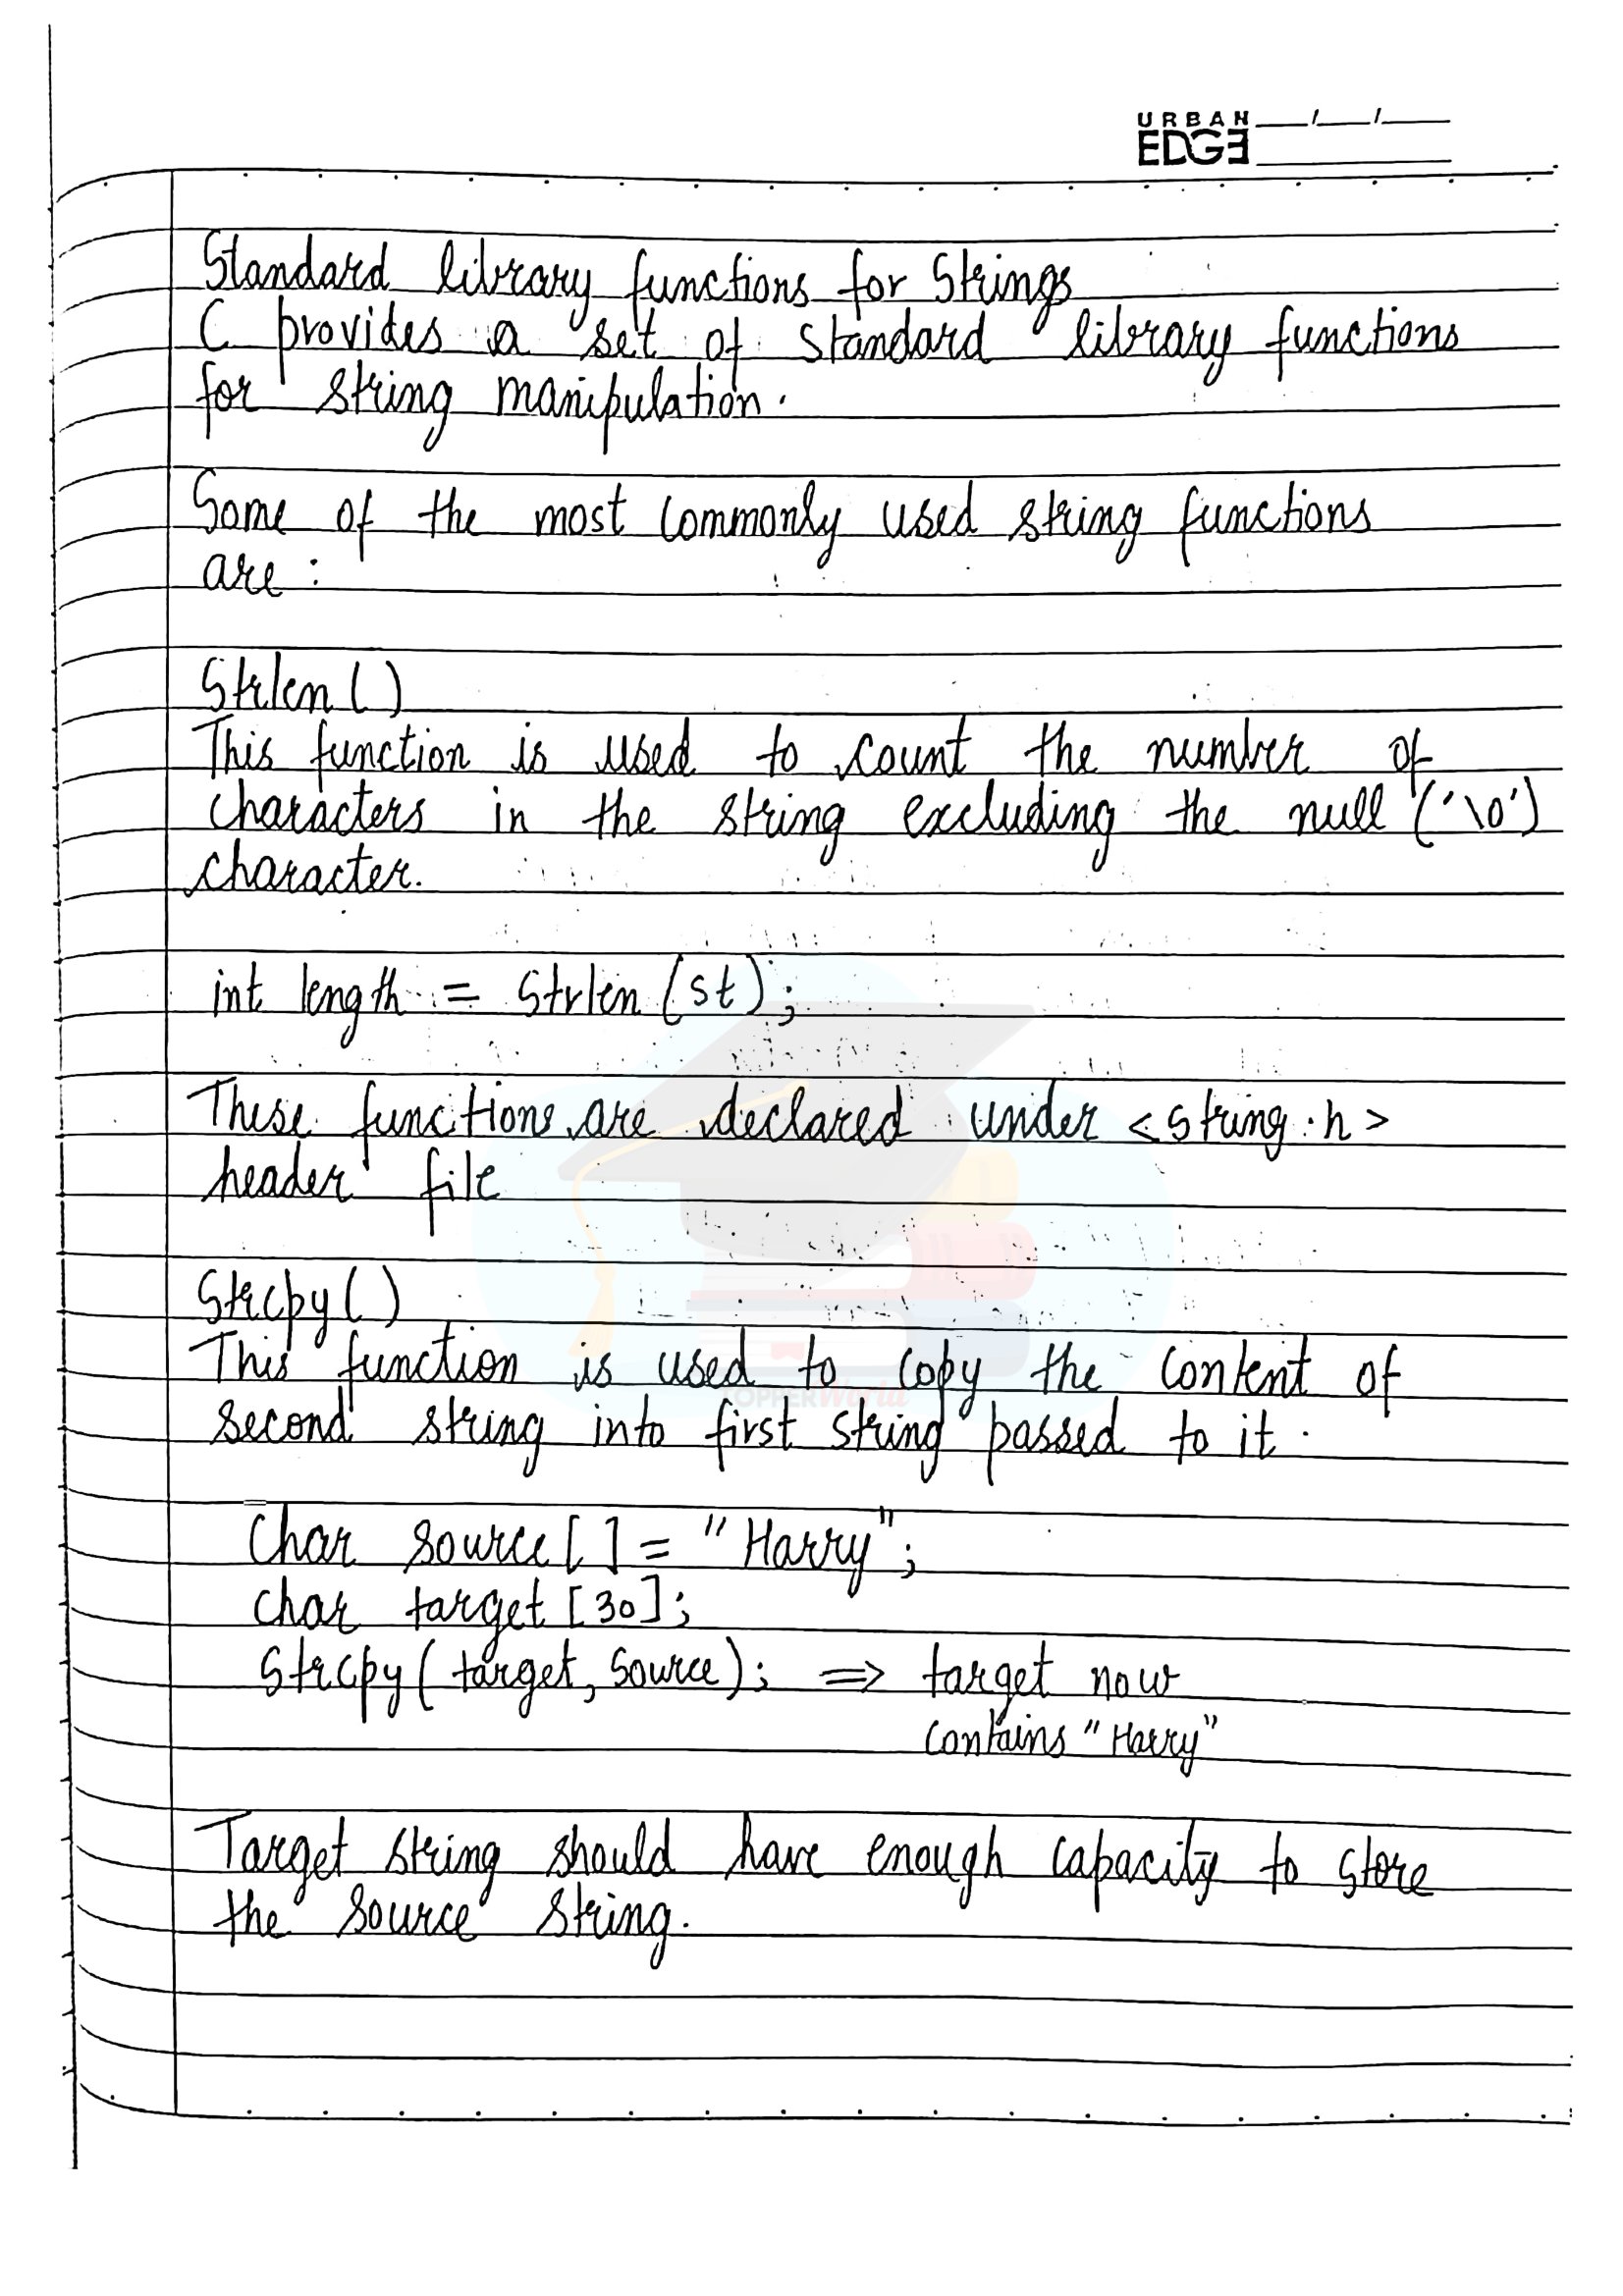 URBAN
EDGE
Standard library functions for Strings
C provides a set of standard library functions
for string manipulation.
Some of the most commonly used string functions
are :
Strlen ( )
This function is used to count the number of
characters in the string excluding the null ('\0')
character.
int length = Strlen (st);
These functions are declared under <string.h>
header file
Strcpy ( )
This function is used to copy the content of
second string into first string passed to it.
Char source [ ] = "Harry";
char target [30];
Strcpy ( target, source); => target now
contains "Harry"
Target string should have enough capacity to store
the source string.
TOPPERWorld